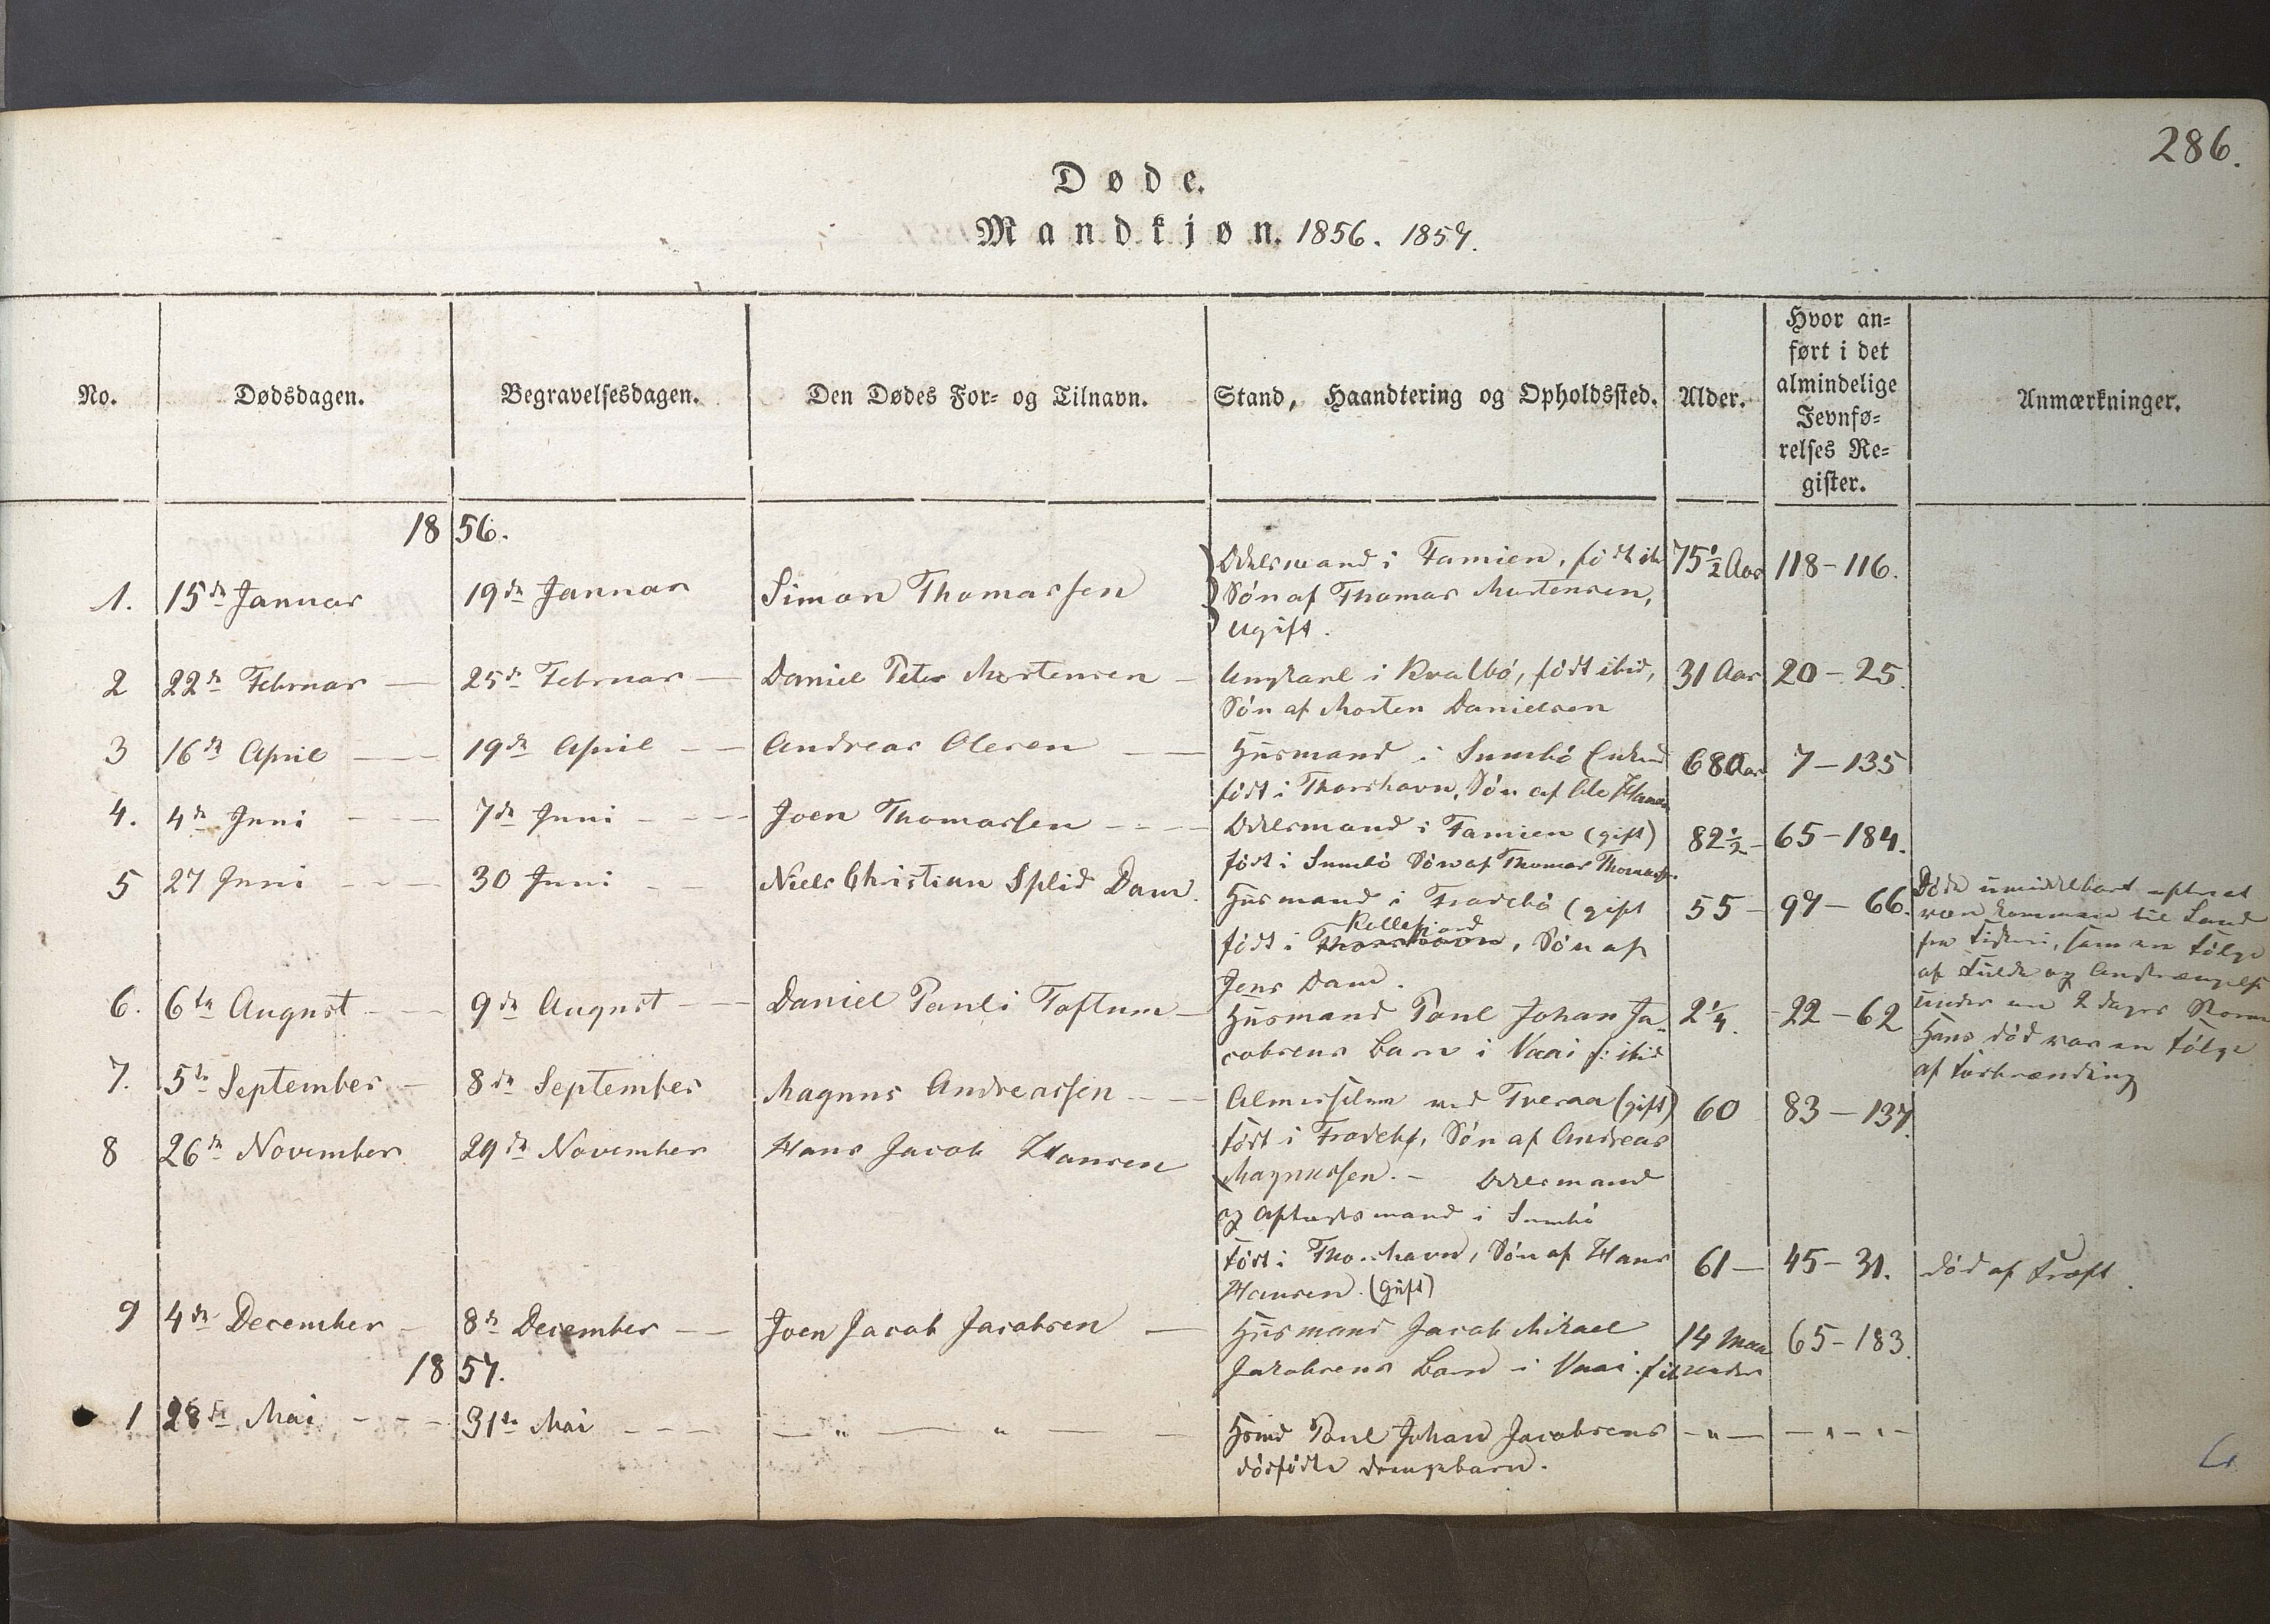 286.
Døde.
Mandkjøn. 1856. 1857.
No.
Dødsdagen.
Begravelsesdagen.
Den Dødes For- og Tilnavn.
Stand, Haandtering og Opholdssted.
Alder.
Hvor an-
ført i det
almindelige
Jevnfø-
relses Re-
gister.
Anmærkninger.
1856.
1. 15de Januar 19de Januar Simon Thomassen Odelsmand i Famien, født ib 75½ Aar 118-116.
Søn af Thomas Mortensen,
ugift.
2 22de Februar — 25de Februar — Daniel Peter Mortensen — Ungkarl i Kvalbö, født ibid, 31 Aar 20-25.
Søn af Morten Danielsen
3 16de April — 19de April — Andreas Olesen — Husmand i Sumbö 68 Aar 7-135
født i Thorshavn, Søn af Ole Hansen
4. 4de Juni — 7de Juni — Joen Thomassen — Odelsmand i Famien (gift) 82½ - 65-184.
født i Sumbö Søn af Thomas
5 27 Juni — 30 Juni — Niels Christian Splid Dam. Husmand i Frodebö (gift 55 - 97-66.
Kollefjord
født i Thorshavn, Søn af
Jens Dam.
Døde umiddelbart efter at
være kommen til Land
fra Fiskeri, som en Følge
af Kulde og Anstrængelse
under en 2 Dages Storm
Hans død var en Følge
af Forbrænding
6. 6te August — 9de August — Daniel Pauli Toftum — Husmand Poul Johan Ja- 2¼. 22-62
cobsens Barn i Vaai f: ibid
7. 5te September — 8de September Magnus Andreassen — Almisselem ved Tveraa (gift) 60 83-137.
født i Frodebø, Søn af Andreas
Magnussen. -
8 26de November 29de November Hans Jacob Hansen Odelsmand
og Aftægtsmand i Sumbö
født i Thorshavn, Søn af Hans 61 — 45-31. død af Kræft.
Hansen. (gift)
9 4de December — 8de December — Joen Jacob Jacobsen — Husmand Jacob Mikael 14 Maa 65-183.
Jakobsens Barn i Vaai. f ib neder
1857.
1 28de Mai - - - 31te Mai - - - — " — " — Hsmd Poul Johan Jacobsens - " — — " - " -
dødfødte Drengebarn.